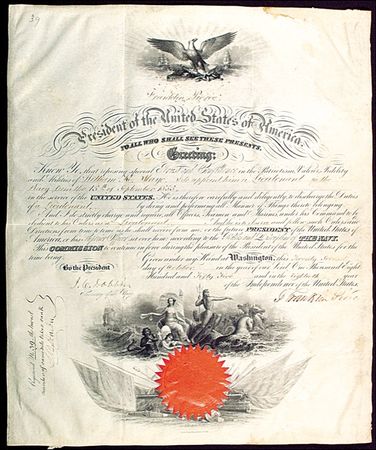 39
Franklin Pierce
President of the United States of America.
TO ALL WHO SHALL SEE THESE PRESENTS,
Greeting:
Know Ye, that reposing special Trust and Confidence in the Patriotism, Valor, Fidelity
and Abilities of William H. I do appoint him a Lieutenant in the
Navy from the 15th of September 1855
in the service of the UNITED STATES. He is therefore carefully and diligently to discharge the Duties
of a Lieutenant by doing and performing all manner of Things thereunto belonging.
And I do strictly charge and require all Officers, Seamen and Marines, under his Command to be
Directions from time to time as he shall receive from me, or the future PRESIDENT of the United States of
America, or his Superior Officer set over him, according to the Rules and Discipline of THE NAVY.
This COMMISSION to continue in force during the pleasure of the President of the United States for the
time being.
Given under my Hand at Washington, this
day of October in the year of our Lord One Thousand Eight
Hundred and Fifty Five and in the Eightieth year
of the Independence of the United States.
By the President
Franklin Pierce
J. C. Dobbin
Secretary of the Navy